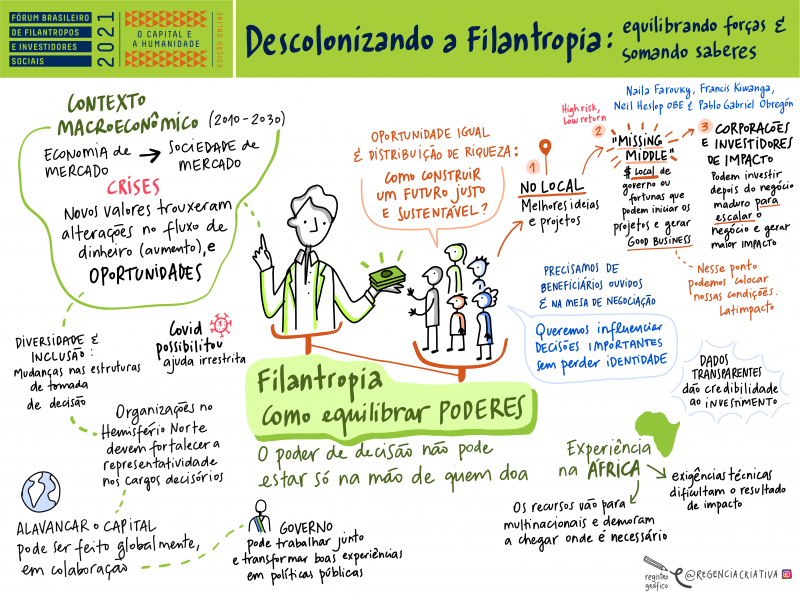 FÓRUM BRASILEIRO
DE FILANTROPOS
E INVESTIDORES
SOCIAIS
2021
O CAPITAL E
A HUMANIDADE
EDIÇÃO ONLINE
Descolonizando a Filantropia:
equilibrando forças &
somando saberes
Naila Farouky, Francis Kiwanga,
Neil Heslop OBE & Pablo Gabriel Obregón
CONTEXTO
MACROECONÔMICO (2010-2030)
ECONOMIA DE
MERCADO
SOCIEDADE DE
MERCADO
CRISES
Novos valores trouxeram
alterações no fluxo de
dinheiro (aumento), e
OPORTUNIDADES
DIVERSIDADE &
INCLUSÃO:
Mudanças nas estruturas
de tomada
de decisão
Covid
possibilitou
ajuda irrestrita
Organizações no
Hemisfério Norte
devem fortalecer a
representatividade
nos cargos decisórios
ALAVANCAR O CAPITAL
pode ser feito globalmente,
em colaboração
GOVERNO
pode trabalhar junto
e transformar boas experiências
em políticas públicas
OPORTUNIDADE IGUAL
& DISTRIBUIÇÃO DE RIQUEZA:
COMO CONSTRUIR
UM FUTURO JUSTO
E SUSTENTÁVEL?
Filantropia
como equilibrar PODERES
O poder de decisão não pode
estar só na mão de quem doa
1
NO LOCAL
Melhores ideias
e projetos
High risk,
Low return
2
"MISSING
MIDDLE"
$ Local de
governo ou
fortunas que
podem iniciar os
projetos e gerar
GOOD BUSINESS
3
CORPORAÇÕES
E INVESTIDORES
DE IMPACTO
Podem investir
depois do negócio
maduro para
escalar o
negócio e gerar
maior IMPACTO
Nesse ponto
podemos colocar
nossas condições.
Latimpacto
PRECISAMOS DE
BENEFICIÁRIOS OUVIDOS
& NA MESA DE NEGOCIAÇÃO
Queremos influenciar
DECISÕES IMPORTANTES
sem perder IDENTIDADE
DADOS
TRANSPARENTES
dão credibilidade
ao INVESTIMENTO
Experiência
na ÁFRICA
exigências técnicas
dificultam o resultado
de impacto
Os recursos vão para
multinacionais e demoram
a chegar onde é necessário
registro
gráfico
@REGENCIACRIATIVA